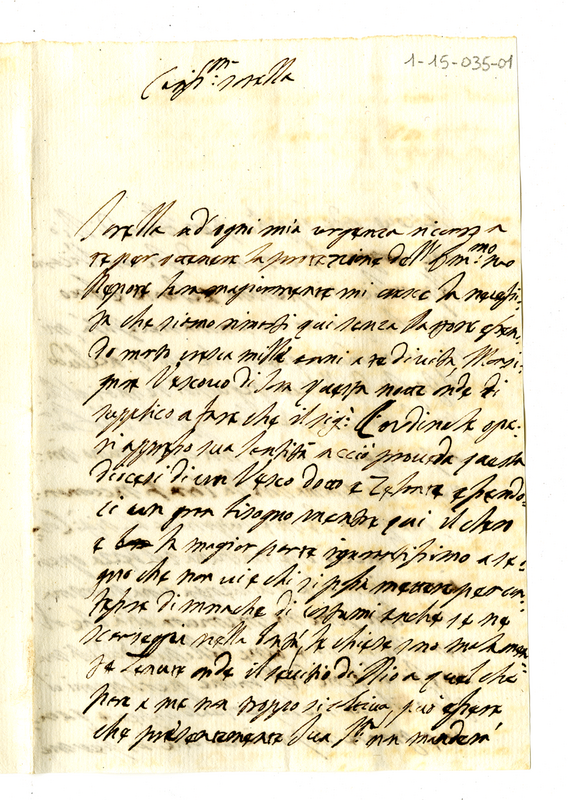 1-15-035-01
Cariss.ma sorella
Sorella ad ogni mia urgenza ricorro a
te per ottenere la protezione dell' Em.mo tuo
magiormente mi cresce la necessi-
tà che siamo rimasti qui senza Pastore essen-
do morto cresca mille anni a te di vita, Monsi-
gnor Vescovo di questa notte onde ti
supplico a fare che il sig.r Cardinale ope-
ri appresso sua Santità acciò proveda questa
diocesi di un Vescovo dotto e zelante essendo-
ci un gran bisogno mentre qui il clero
è la magior parte ignorantissimo a se-
gno che non vi è chi si possa mettere per con-
fessore di monache di costumi anche se ne
scarseggia nella le chiese sono malamen-
te tenute onde il servitio di Dio a quel che
pare a me non troppo si coltiva, può essere
che presentemente Sua S.tà non manderà